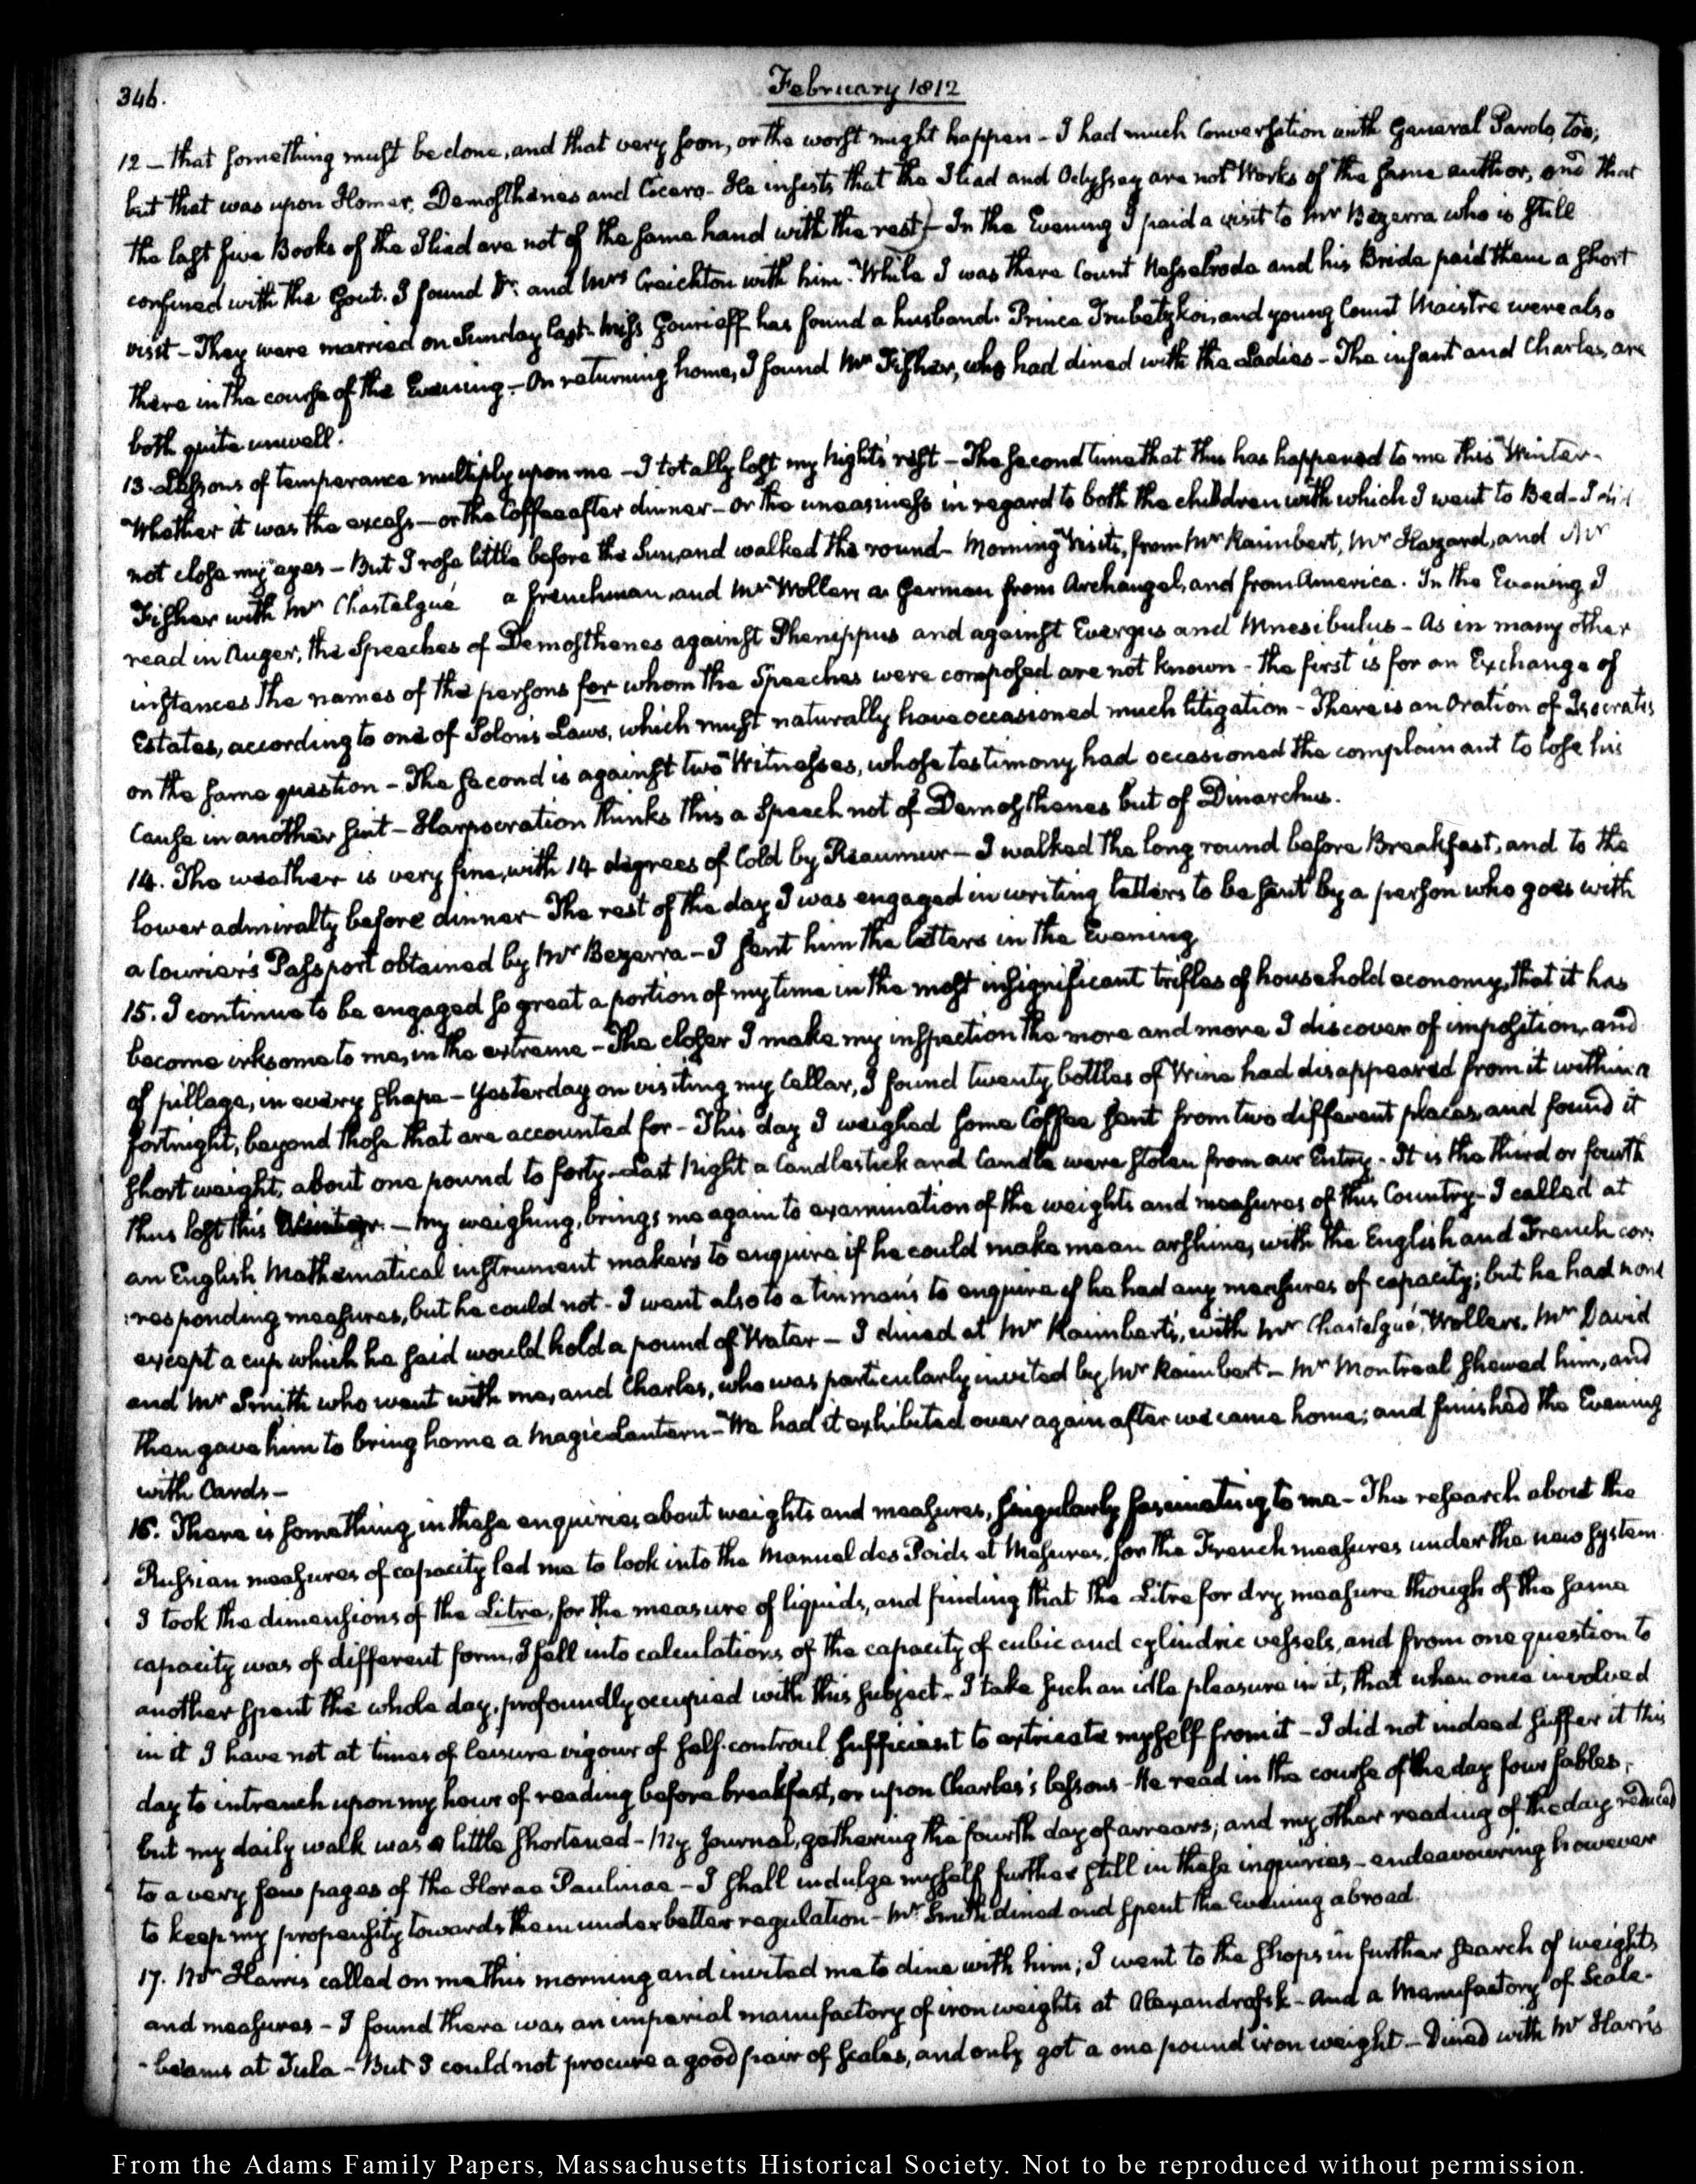 346.
February 1812
12 – that something must be done, and that very soon, or the worst might happen – I had much Conversation with General Pardo, too;
but that was upon Homer, Demosthenes and Cicero – He insists that the Iliad and Odyssey are not Works of the same author, and that
the last five Books of the Iliad are not of the same hand with the rest) – In the Evening I paid a visit to Mr Bezerra who is still
confined with the Gout. I found Dr. and Mrs Creichton with him. While I was there Count Nesselrode and his Bride paid them a short
visit – They were married on Sunday last. Miss Gourieff has found a husband. Prince Trubetzkoi, and young Count Maistre were also
there in the course of the Evening. – On returning home, I found Mr Fisher, who had dined with the Ladies – The infant and Charles, are
both quite unwell.
13. Lessons of temperance multiply upon me – I totally lost my Night's rest – The second time that this has happened to me this Winter –
Whether it was the excess – or the Coffee after dinner – or the uneasiness in regard to both the children with which I went to Bed – I did
not close my eyes – But I rose little before the Sun, and walked the round – Morning Visits, from Mr Raimbert, Mr Hazard, and Mr
Fisher with Mr Chastelgué a frenchman, and Mr Wollers a German from Archangel, and from America. In the Evening I
read in Auger, the Speeches of Demosthenes against Phenippus and against Evergus and Mnesibulus – As in many other
instances the names of the persons for whom the Speeches were composed are not known – the first is for an Exchange of
Estates, according to one of Solon's Laws, which must naturally have occasioned much litigation – There is an Oration of Isocrates
on the same question – The second is against two Witnesses, whose testimony had occasioned the complainant to lose his
Cause in another suit – Harpocration thinks this a Speech not of Demosthenes but of Dinarchus.
14. The weather is very fine, with 14 degrees of Cold by Reaumur – I walked the long round before Breakfast, and to the
lower admiralty before dinner – The rest of the day I was engaged in writing letters to be sent by a person who goes with
a Courier's Passport obtained by Mr Bezerra – I sent him the letters in the Evening
15. I continue to be engaged so great a portion of my time in the most insignificant trifles of household economy, that it has
become irksome to me, in the extreme – The closer I make my inspection the more and more I discover of imposition, and
of pillage, in every shape – Yesterday on visiting my Cellar, I found twenty bottles of Wine had disappeared from it within a
fortnight, beyond those that are accounted for – This day I weighed some Coffee sent from two different places, and found it
short weight, about one pound to forty – Last Night a Candlestick and Candle were stolen from our Entry – It is the third or fourth
thus lost this Winter. – My weighing, brings me again to examination of the weights and measures of this Country – I called at
an English Mathematical instrument maker's to enquire if he could make me an arshine, with the English and French cor-
:responding measures, but he could not – I went also to a tinman's to enquire if he had any measures of capacity; but he had none
except a cup which he said would hold a pound of Water – I dined at Mr Raimbert's, with Mr Chastelgué, Wollers, Mr David
and Mr Smith who went with me, and Charles, who was particularly invited by Mr Raimbert – Mr Montreal shewed him, and
then gave him to bring home a Magic Lantern – We had it exhibited over again after we came home; and finished the Evening
with Cards –
16. There is something in these enquiries about weights and measures, singularly fascinating to me – The research about the
Russian measures of capacity led me to look into the Manuel des Poids et Mesures, for the French measures under the new system
I took the dimensions of the Litre, for the measure of liquids, and finding that the Litre for dry measure though of the same
capacity was of different form, I fell into calculations of the capacity of cubic and cylindric vessels, and from one question to
another spent the whole day, profoundly occupied with this subject – I take such an idle pleasure in it, that when once involved
in it I have not at times of leisure vigour of self-controul sufficient to extricate myself from it – I did not indeed suffer it this
day to intrench upon my hour of reading before breakfast, or upon Charles's lessons – He read in the course of the day four fables;
but my daily walk was a little shortened – My Journal, gathering the fourth day of arrears; and my other reading of the day reduced
to a very few pages of the Horae Paulinae – I shall indulge myself further still in these inquiries – endeavouring however
to keep my propensity towards them under better regulation – Mr Smith dined and spent the Evening abroad.
17. Mr Harris called on me this morning and invited me to dine with him; I went to the shops in further search of weights
and measures – I found there was an imperial manufactory of iron weights at Alexandrofsk – and a Manufactory of Scale-
-beams at Tula – But I could not procure a good pair of Scales, and only got a one pound iron weight – Dined with Mr Harris
From the Adams Family Papers, Massachusetts Historical Society. Not to be reproduced without permission.